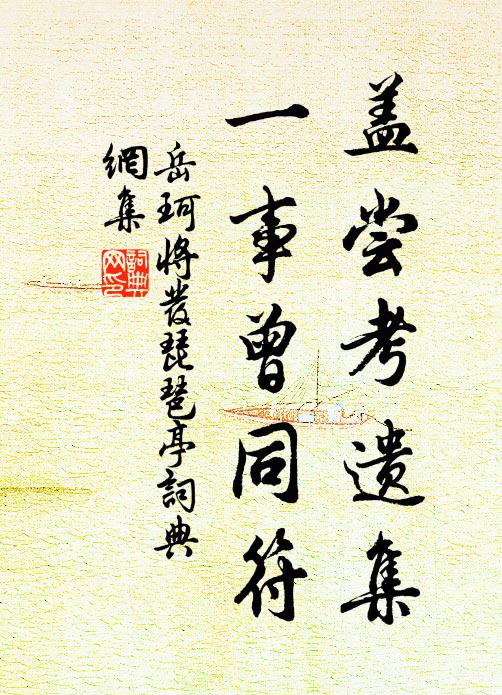 盖尝考遗集
一事曾同符
岳珂将發琵琶亭詞典
網集
詞典
网印